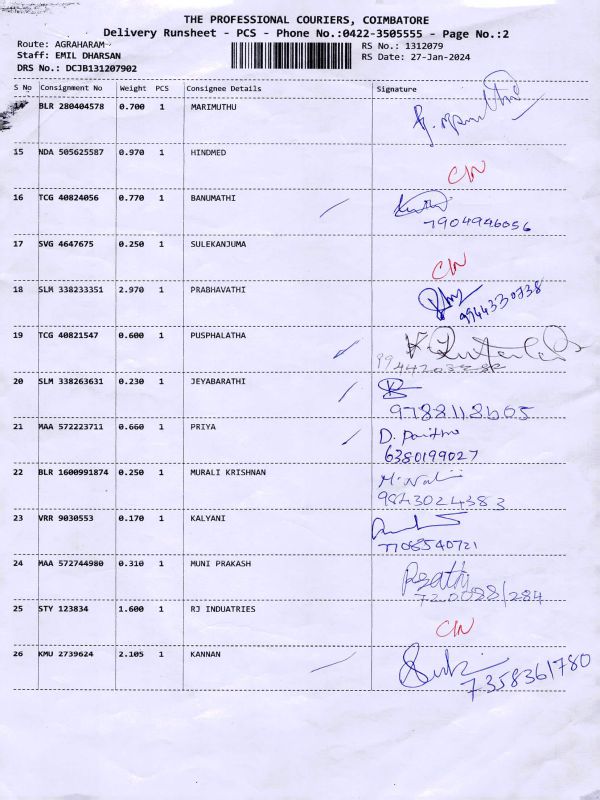 THE PROFESSIONAL COURIERS, COIMBATORE
Delivery Runsheet - PCS - Phone No.:0422-3505555 - Page No.:2
Route: AGRAHARAM RS No.: 1312079
Staff: EMIL DHARSAN RS Date: 27-Jan-2024
DRS No.: DCJB131207902
S No Consignment No Weight PCS Consignee Details Signature
14 BLR 280404578 0.700 1 MARIMUTHU
15 NDA 505625587 0.970 1 HINDMED C/N
16 TCG 40824056 0.770 1 BANUMATHI
7904946056
17 SVG 4647675 0.250 1 SULEKANJUMA C/N
18 SLM 338233351 2.970 1 PRABHAVATHI
19 TCG 40821547 0.600 1 PUSPHALATHA
20 SLM 338263631 0.230 1 JEYABARATHI
9788118605
21 MAA 572223711 0.660 1 PRIYA
6380199027
22 BLR 1600991874 0.250 1 MURALI KRISHNAN
9843024383
23 VRR 9030553 0.170 1 KALYANI
7708540721
24 MAA 572744980 0.310 1 MUNI PRAKASH
25 STY 123834 1.600 1 RJ INDUATRIES C/N
26 KMU 2739624 2.105 1 KANNAN
7358361780